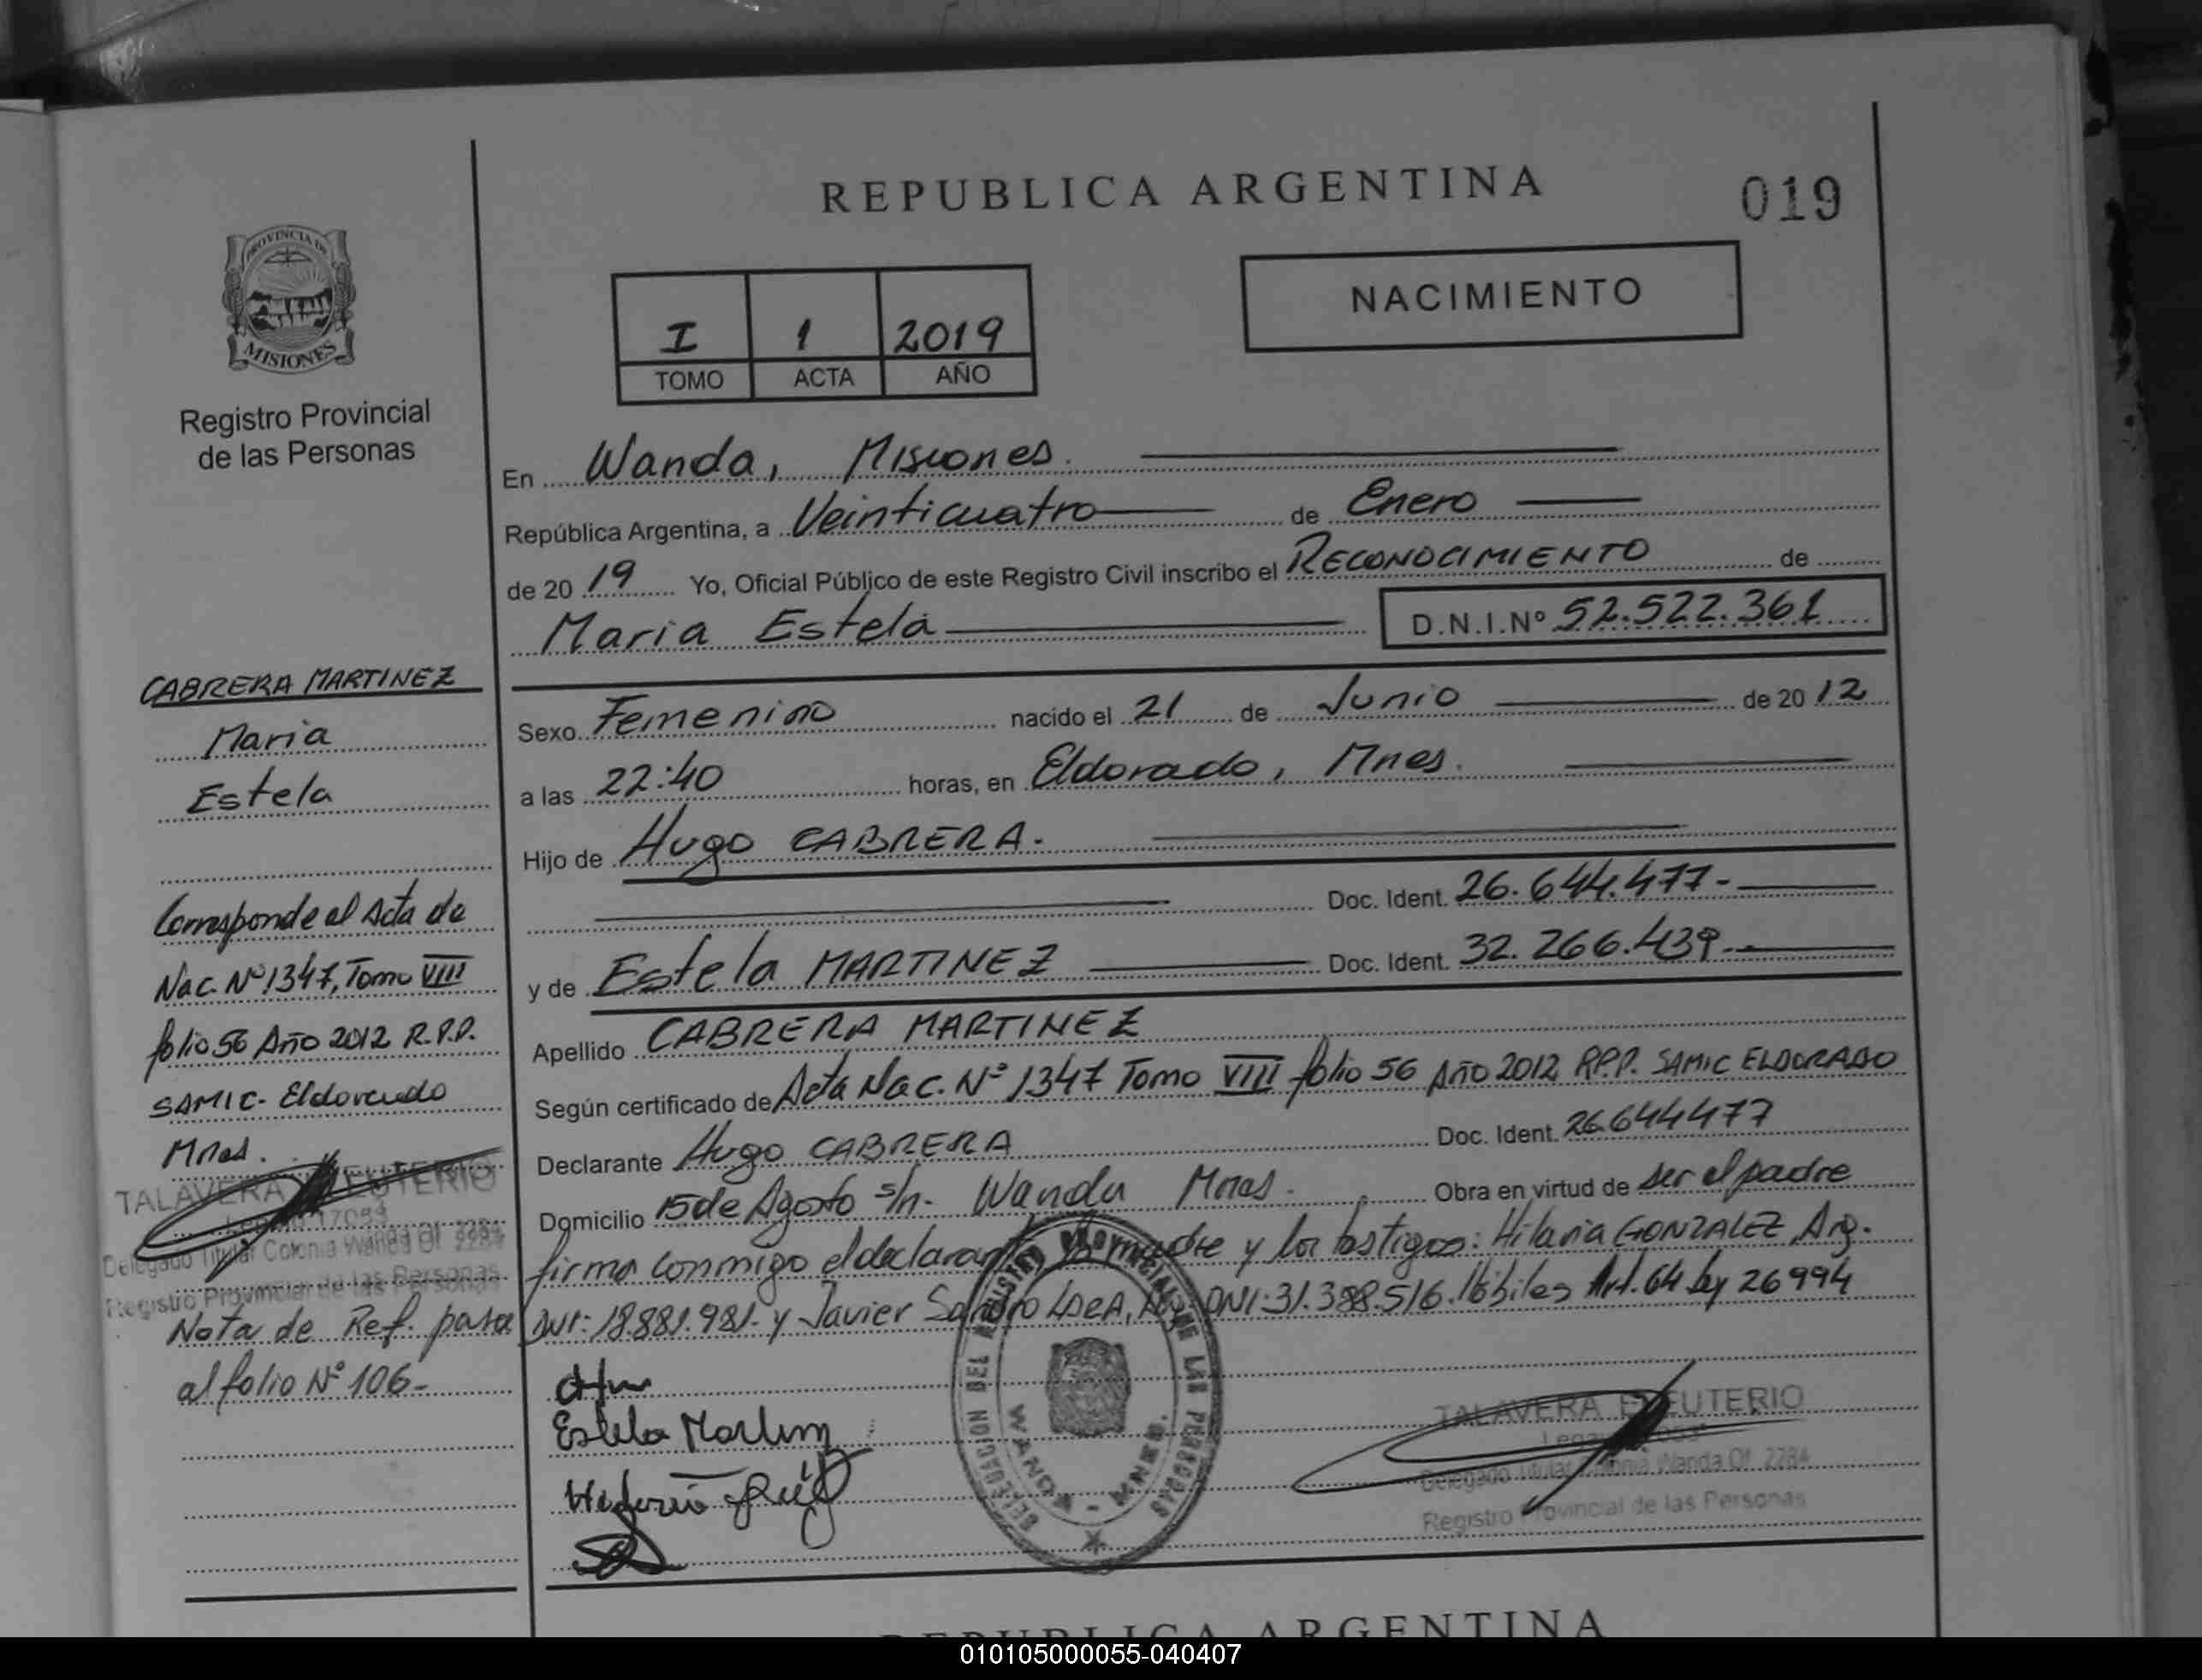 REPUBLICA ARGENTINA
019
PROVINCIA DE
MISIONES
Registro Provincial
de las Personas
I 1 2019
TOMO ACTA AÑO
NACIMIENTO
En Wanda, Misiones.
República Argentina, a Veinticuatro de Enero
de 20 19 Yo, Oficial Público de este Registro Civil inscribo el RECONOCIMIENTO de
Maria Estela D.N.I.Nº 52.522.361
Sexo Femenino nacido el 21 de Junio de 20 12
a las 22:40 horas, en Eldorado, Mnes.
Hijo de Hugo CABRERA.
Doc. Ident. 26.644.477-
y de Estela MARTINEZ Doc. Ident. 32.266.439.-
Apellido CABRERA MARTINEZ
Según certificado de Acta Nac. Nº 1347 Tomo VIII folio 56 Año 2012 R.P.P. SAMIC ELDORADO
Declarante Hugo CABRERA Doc. Ident. 26644477
Domicilio 15 de Agosto s/n. Wanda Mnes. Obra en virtud de ser el padre
firma conmigo el declarante, la madre y los testigos: Hilaria GONZALEZ, Arg.
DNI: 18.881.981. y Javier Sandro Arg. DNI: 31.388.516. Hábiles Art. 64 Ley 26994
CABRERA MARTINEZ
Maria
Estela
Corresponde al Acta de
Nac. Nº 1347, Tomo VIII
folio 56 Año 2012 R.P.P.
SAMIC- Eldorado
Mnes.
TALAVERA ELEUTERIO
Legajo 17053
Delegado Titular Colonia Wanda Of. 2284
Registro Provincial de las Personas
Nota de Ref. pasa
al folio Nº 106-
Estela
WANDA - MNES.
TALAVERA ELEUTERIO
Delegado Titular Colonia Wanda Of. 2284
Registro Provincial de las Personas
REPUBLICA ARGENTINA
010105000055-040407